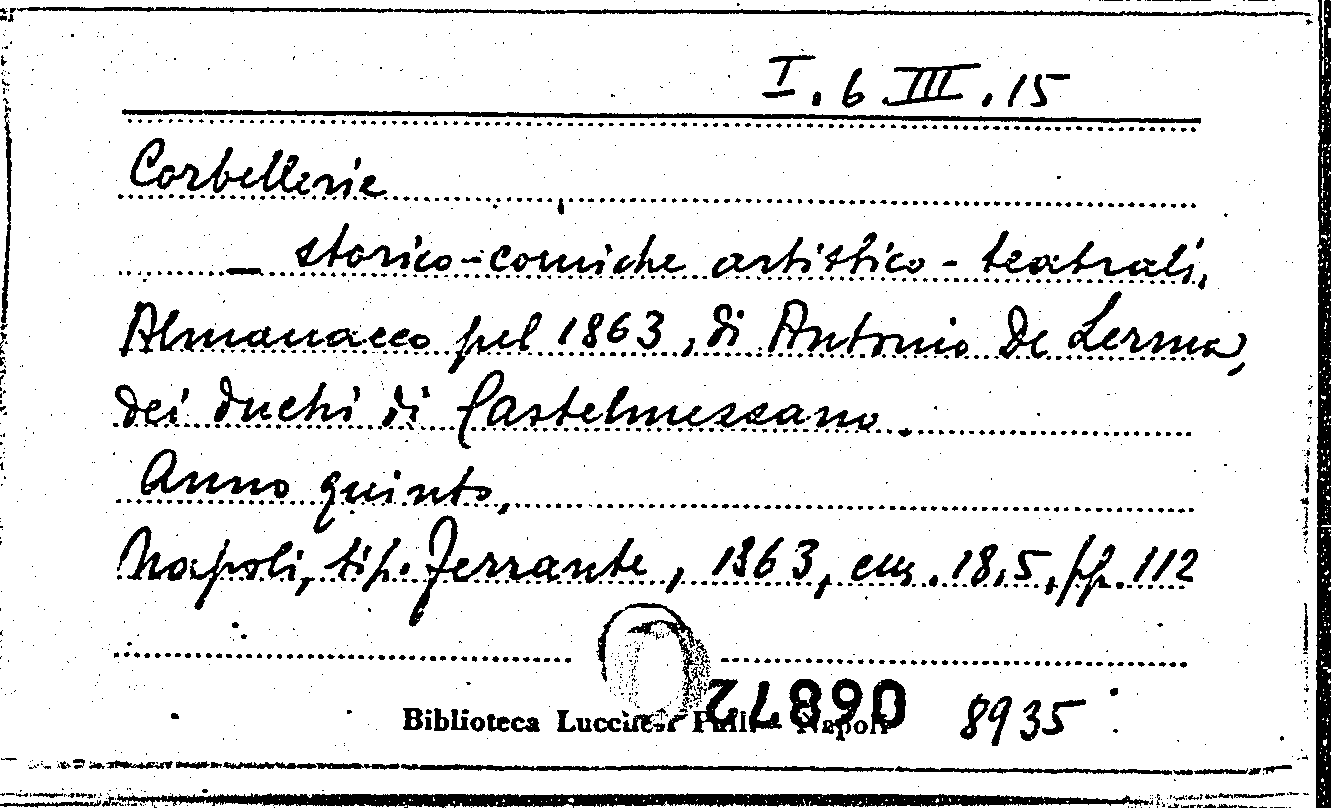 I. 6 III. 15
Corbellerie
— storico-comiche artistico-teatrali,
Almanacco pel 1863, di Antonio De Lerma,
dei duchi di Castelmezzano.
Anno quinto,
Napoli, tip. Ferrante, 1863, cm. 18,5, pp. 112
Biblioteca Lucchesi Palli - Napoli 8935
06872